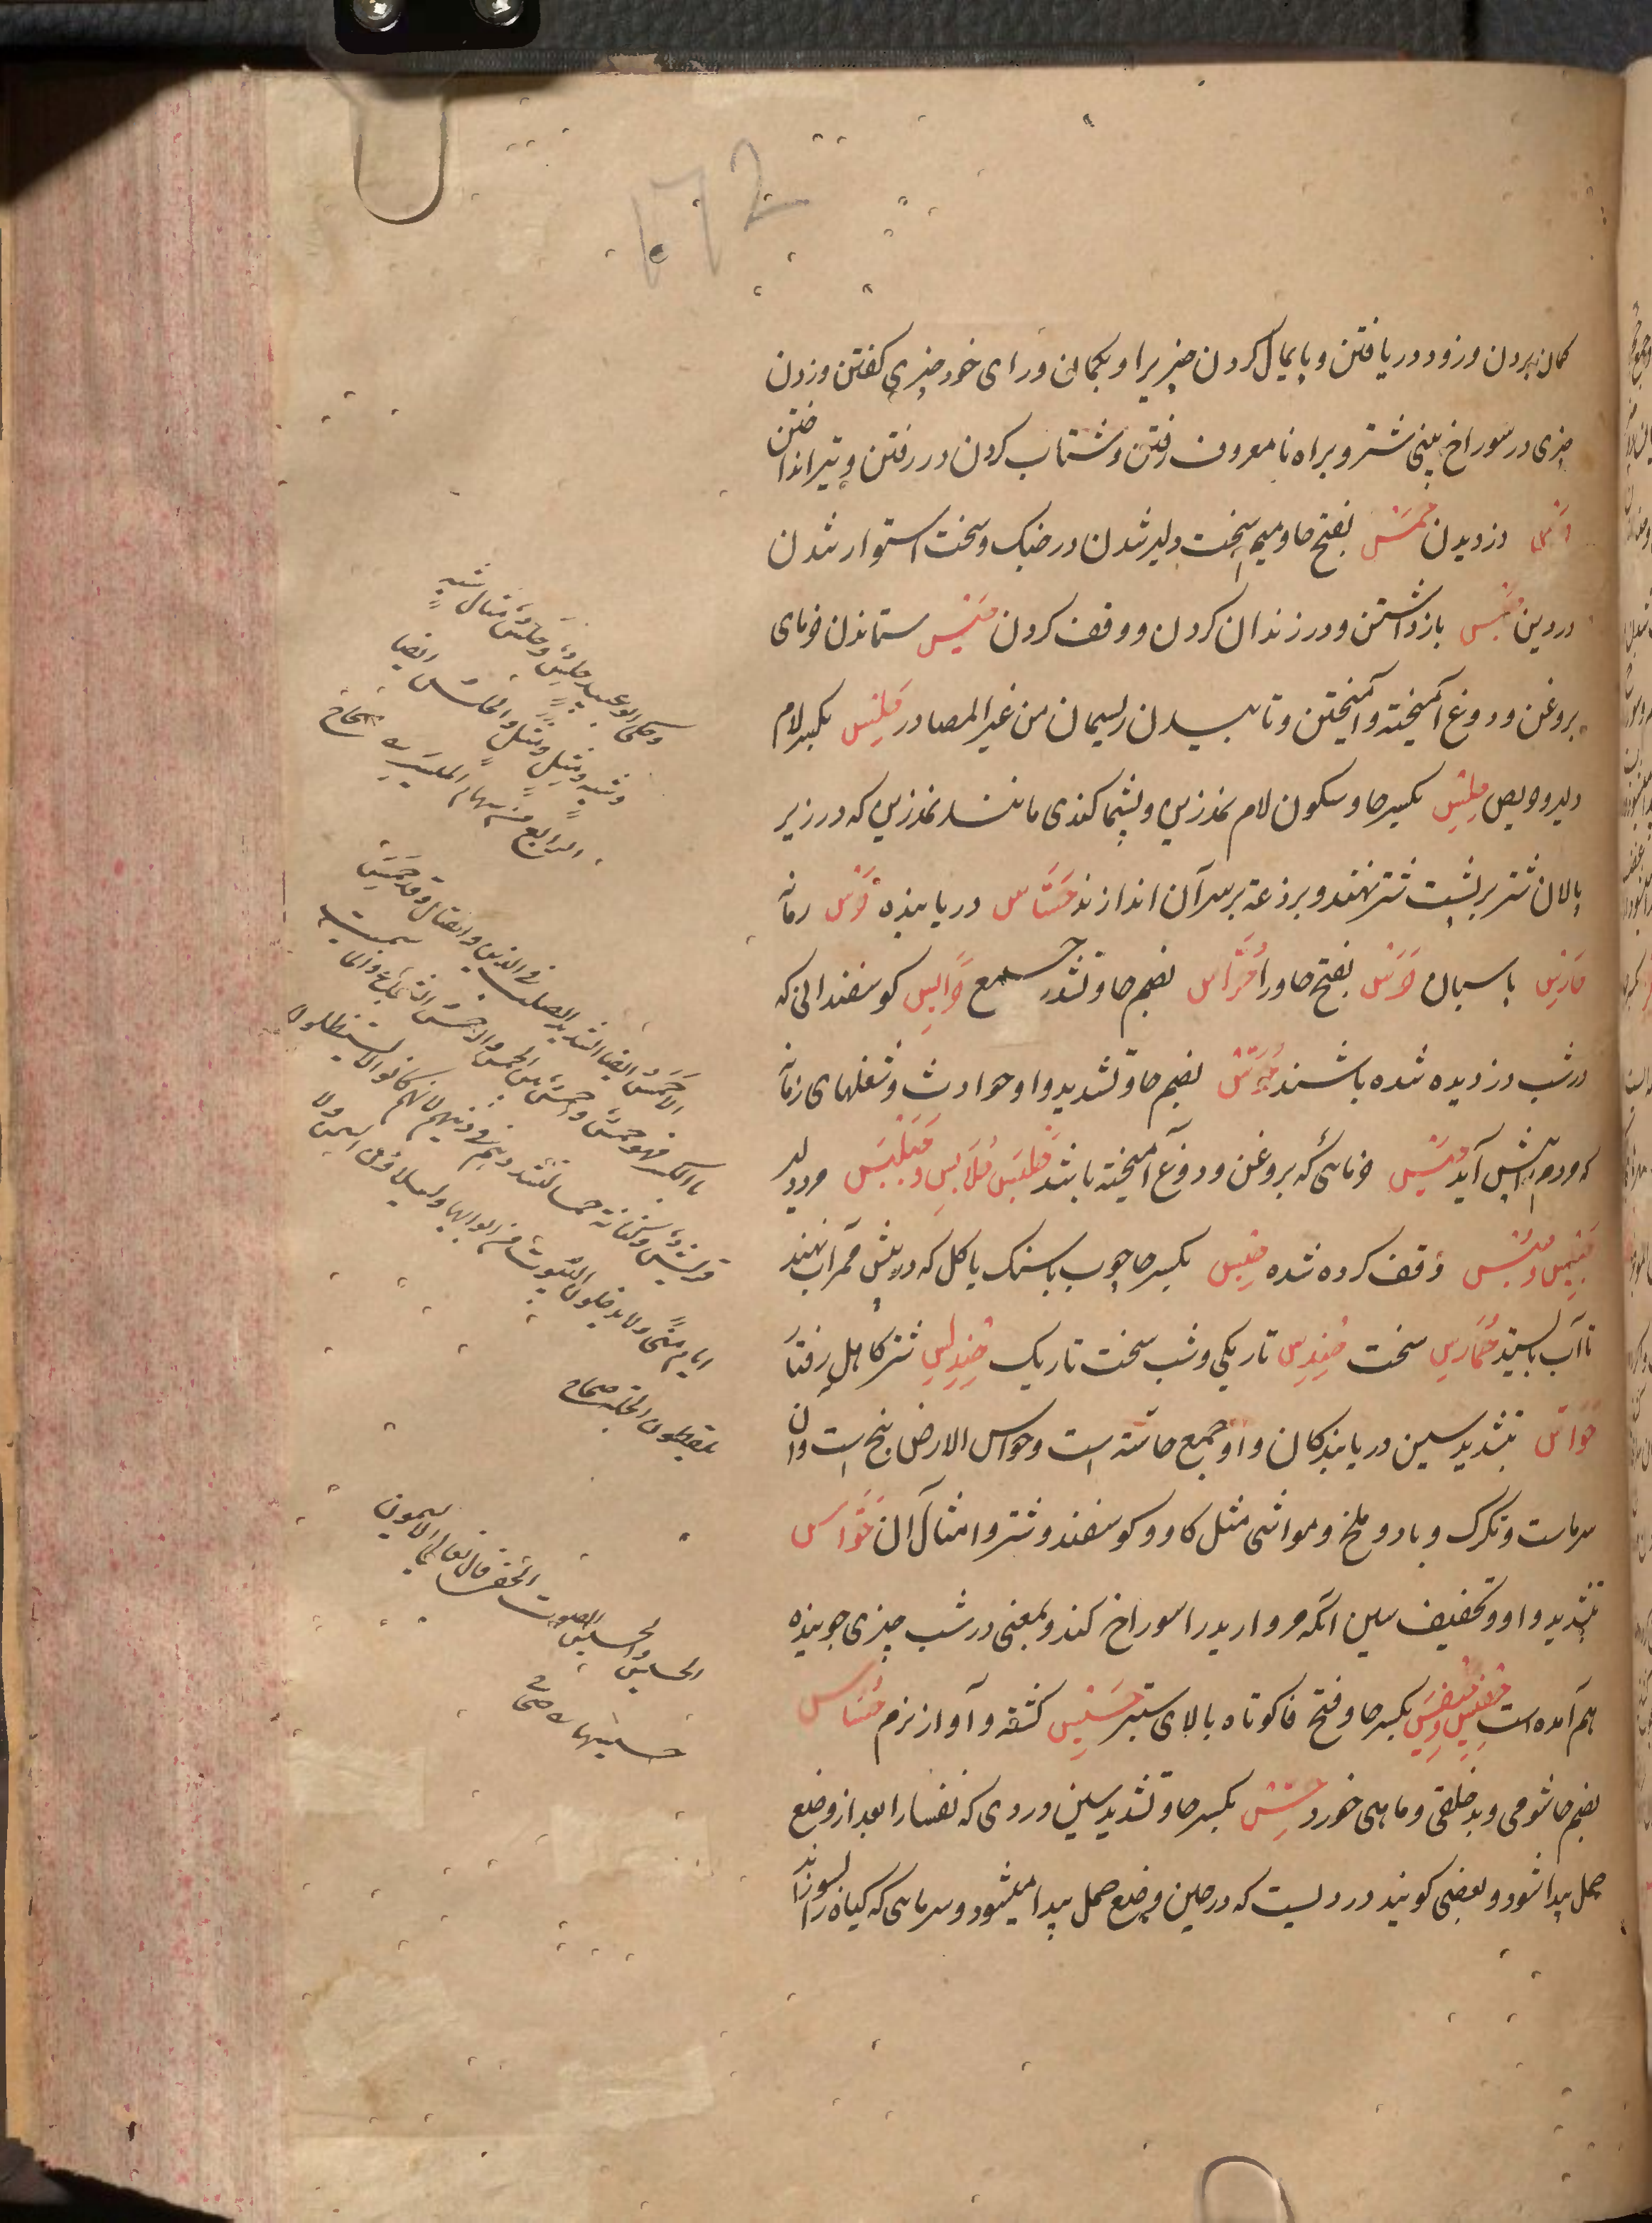 کمان بردن و زود دریافتن و پایمال کردن چیزیرا و بکمان و رای خود چیزی کفتن و زدن
چیزی در سوراخ بینی شتر و براه نامعروف رفتن و شتاب کردن در رفتن و تیر انداختن
حرس دزدیدن حمس بفتح حا و میم سخت دلیر شدن در جنک و سخت استوار شدن
در دین حبس بازداشتن و در زندان کردن و وقف کردن حیس ستاندن خرمای
بروغن و دوغ آمیخته و آمیختن و تابیدن ریسمان من غیر المصادر حلس بکسر لام
دلیر و حریص حلس بکسر حا و سکون لام نمدزین و پشماکندی مانند نمدزین که در زیر
پالان شتر بر پشت شتر نهند و بر ذعه بر سر آن اندازند حساس دریابنده حرس زمانه
حارس پاسبان حرس بفتح حا و را حراس بضم حا و تشدید جمع حرایس کوسفندانی که
در شب دزدیده شده باشند حوس بضم حا و تشدید واو حوادث و شغلهای زمانه
که مردم را پیش آید حیس خرمائی که بروغن و دوغ آمیخته باشند حلبس حلابس و حبلبس مرد دلیر
حبیس و حبس وقف کرده شده حبس بکسر حا چوب یا سنک یا کل که در پیش ممر آب نهند
تا آب بایستد حمارس سخت حندس تاریکی و شب سخت تاریک حندلس شتر کاهل رفتار
حواس بتشدید سین دریابندکان و او جمع حاسه است و حواس الارض پنج است و آن
سرماست و تکرک و باد و ملخ و مواشی مثل کاو و کوسفند و شتر و امثال آن حواس
بتشدید واو و تخفیف سین آنکه مروارید را سوراخ کند و بمعنی در شب چیزی جوینده
هم آمده است حفیس و حیفس بکسر حا و فتح فا کوتاه بالای ستبر حسیس کشته و آواز نرم حساس
بضم حا شومی و بدخلقی و ماهی خورد حس بکسر حا و تشدید سین دردی که نفسا را بعد از وضع
حمل پیدا شود و بعضی کویند دردیست که در حین وضع حمل پیدا میشود و سرمائی که کیاه را بسوزاند
وحکی ابو عبید حلس وحلس مثال شبه
وشبه ومثل ومثل والحلس ایضا
الرابع من سهام المیسر صحاح
الاحمس ایضا الشدید الصلب فی الدین والقتال وقد حمس
بالکسر فهو حمس واحمس بین الحمس والاحمس الشجاع وانما سمیت
قریش وکنانة حمسا لتشددهم فی دینهم لانهم کانوا لا یستظلون
ایام منی ولا یدخلون البیوت من ابوابها ولا یسلؤن السمن ولا
یلقطون الجلة صحاح
الحس والحسیس الصوت الخفی قال تعالی لا یسمعون
حسیسها صحاح